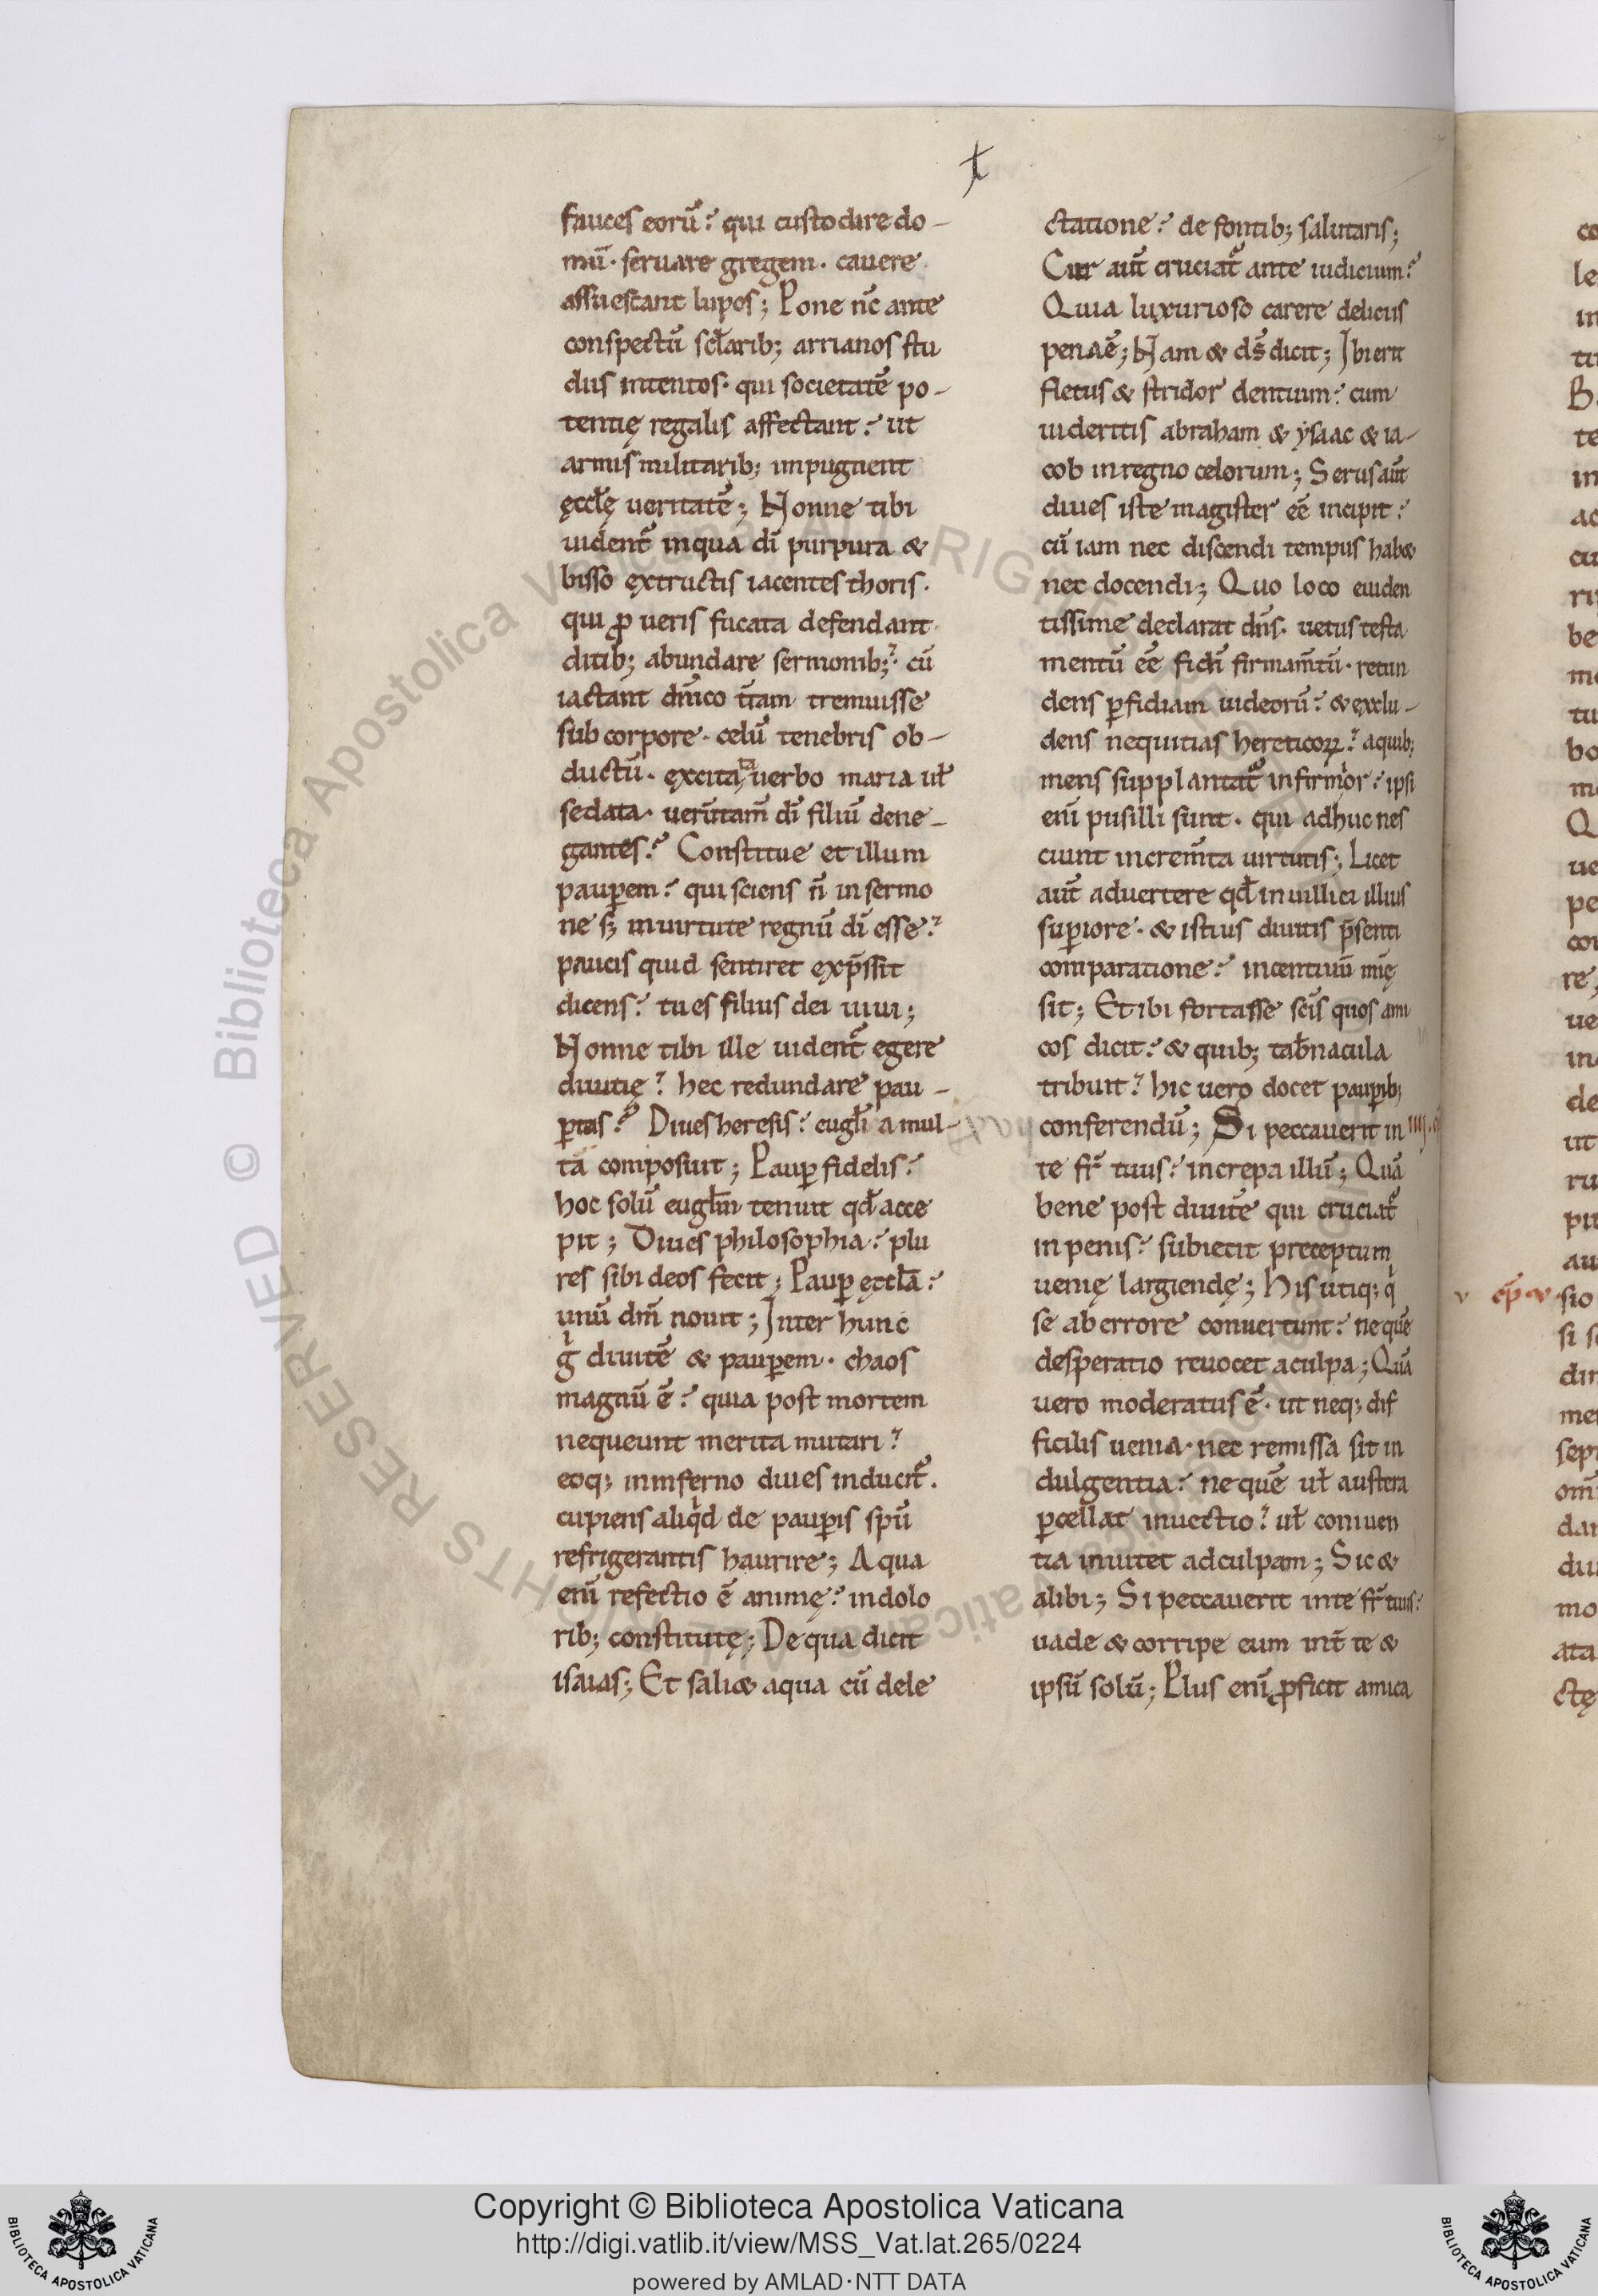 fauces eorū? qui custodire do-
mū· seruare gregem· cauere
assuescant lupos; Pone nc̄ ante
conspectū scłarib; arrianos stu
diis intentos· qui societatē po-
tentię regalis affectant? ut
armis militarib; impugnent
ęccłę ueritatē; Nonne tibi
uident᷑ in qua dī purpura &
bisso extructis iacentes thoris·
qui ꝓ ueris fucata defendant·
ditib; abundare sermonib;? cū
iactant dn̄ico t̄ram tremuisse
sub corpore· celū tenebris ob-
ductū· excitata uerbo maria uł
sedata· uerūtam̄ dī filiū dene-
gantes? Constitue et illum
pauꝑem? qui sciens n̄ in sermo
ne s; in uirtute regnū dī esse?
paucis quid sentiret exp̄ssit
dicens? tu es filius dei uiui;
Nonne tibi ille uident᷑ egere
diuitię? hec redundare pau-
ꝑtas? Diues heresis? eugłi a mul-
ta composuit; Pauꝑ fidelis?
hoc solū eugłm tenuit qđ acce
pit; Diues philosophia? plu
res sibi deos fecit; Pauꝑ ęccła?
unū dm̄ nouit; Inter hunc
gͥ diuitē & pauꝑem· chaos
magnū ē? quia post mortem
nequeunt merita mutari?
eoq; in inferno diues inducit᷑·
cupiens aliqͥd de pauꝑis spū
refrigerantis haurire; Aqua
enī refectio ē animę? in dolo
rib; constitutę; De qua dicit
isaias; Et sali& aqua cū dele
ctatione? de fontib; salutaris;
Cur aut̄ cruciat᷑ ante iudicium?
Quia luxurioso carere deliciis
pena ē; Nam & ds̄ dicit; Ibi erit
fletus & stridor dentium? cum
uideritis abraham & ysaac & ia-
cob in regno celorum; Serus aut̄
diues iste magister eē incipit?
cū iam nec discendi tempus hab&
nec docendi; Quo loco euiden
tissime declarat dn̄s· uetus testa
mentū eē fidī firmam̄tū· retun
dens ꝑfidiam iudeorū? & exclu-
dens nequitias hereticoꝝ? a quib;
mens supplantat᷑ infirmͥor? ipsi
enī pusilli sunt· qui adhuc nes
ciunt increm̄ta uirtutis; Licet
aut̄ aduertere qđ in uillici illius
suꝑiore· & istius diuitis p̄senti
comparatione? incentiuū mīę
sit; Et ibi fortasse sc̄is quos ami
cos dicit? & quib; tab̄nacula
tribuit? hic uero docet pauꝑib;
conferendū; Si peccauerit in
te fr̄ tuus? increpa illū; Quā
bene post diuitē qui cruciat᷑
in penis? subiecit preceptum
uenię largiendę; His utiq; qͥ
se ab errore conuertunt? ne quē
desperatio reuocet a culpa; Quā
uero moderatus ē· ut neq; dif
ficilis uenia· nec remissa sit in
dulgentia? ne quē uł austera
ꝑcellat inuectio? uł coniuen
tia inuitet ad culpam; Sic &
alibi; Si peccauerit in te fr̄ tuus?
uade & corripe eum int̄ te &
ipsū solū; Plus enī ꝓficit amica
Copyright © Biblioteca Apostolica Vaticana
http://digi.vatlib.it/view/MSS_Vat.lat.265/0224
powered by AMLAD·NTT DATA